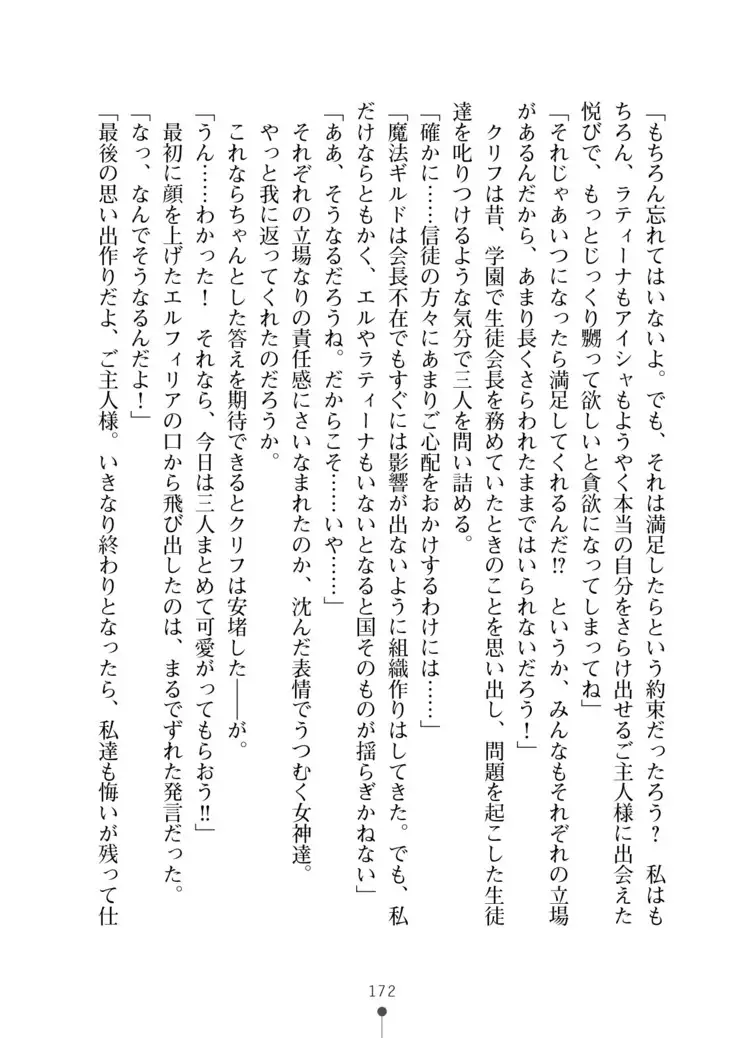 「もちろん忘れてはいないよ。でも、それは満足したらという約束だったろう？　私はも
ちろん、ラティーナもアイシャもようやく本当の自分をさらけ出せるご主人様に出会えた
悦びで、もっとじっくり嬲って欲しいと貪欲になってしまってね」
「それじゃあいつになったら満足してくれるんだ⁉　というか、みんなもそれぞれの立場
があるんだから、あまり長くさらわれたままではいられないだろう！」
クリフは昔、学園で生徒会長を務めていたときのことを思い出し、問題を起こした生徒
達を叱りつけるような気分で三人を問い詰める。
「確かに……信徒の方々にあまりご心配をおかけするわけには……」
「魔法ギルドは会長不在でもすぐには影響が出ないように組織作りはしてきた。でも、私
だけならともかく、エルやラティーナもいないとなると国そのものが揺らぎかねない」
「ああ、そうなるだろうね。だからこそ……いや……」
それぞれの立場なりの責任感にさいなまれたのか、沈んだ表情でうつむく女神達。
やっと我に返ってくれたのだろうか。
これならちゃんとした答えを期待できるとクリフは安堵した――が。
「うん……わかった！　それなら、今日は三人まとめて可愛がってもらおう‼」
最初に顔を上げたエルフィリアの口から飛び出したのは、まるでずれた発言だった。
「なっ、なんでそうなるんだよ！」
「最後の思い出作りだよ、ご主人様。いきなり終わりとなったら、私達も悔いが残って仕
172